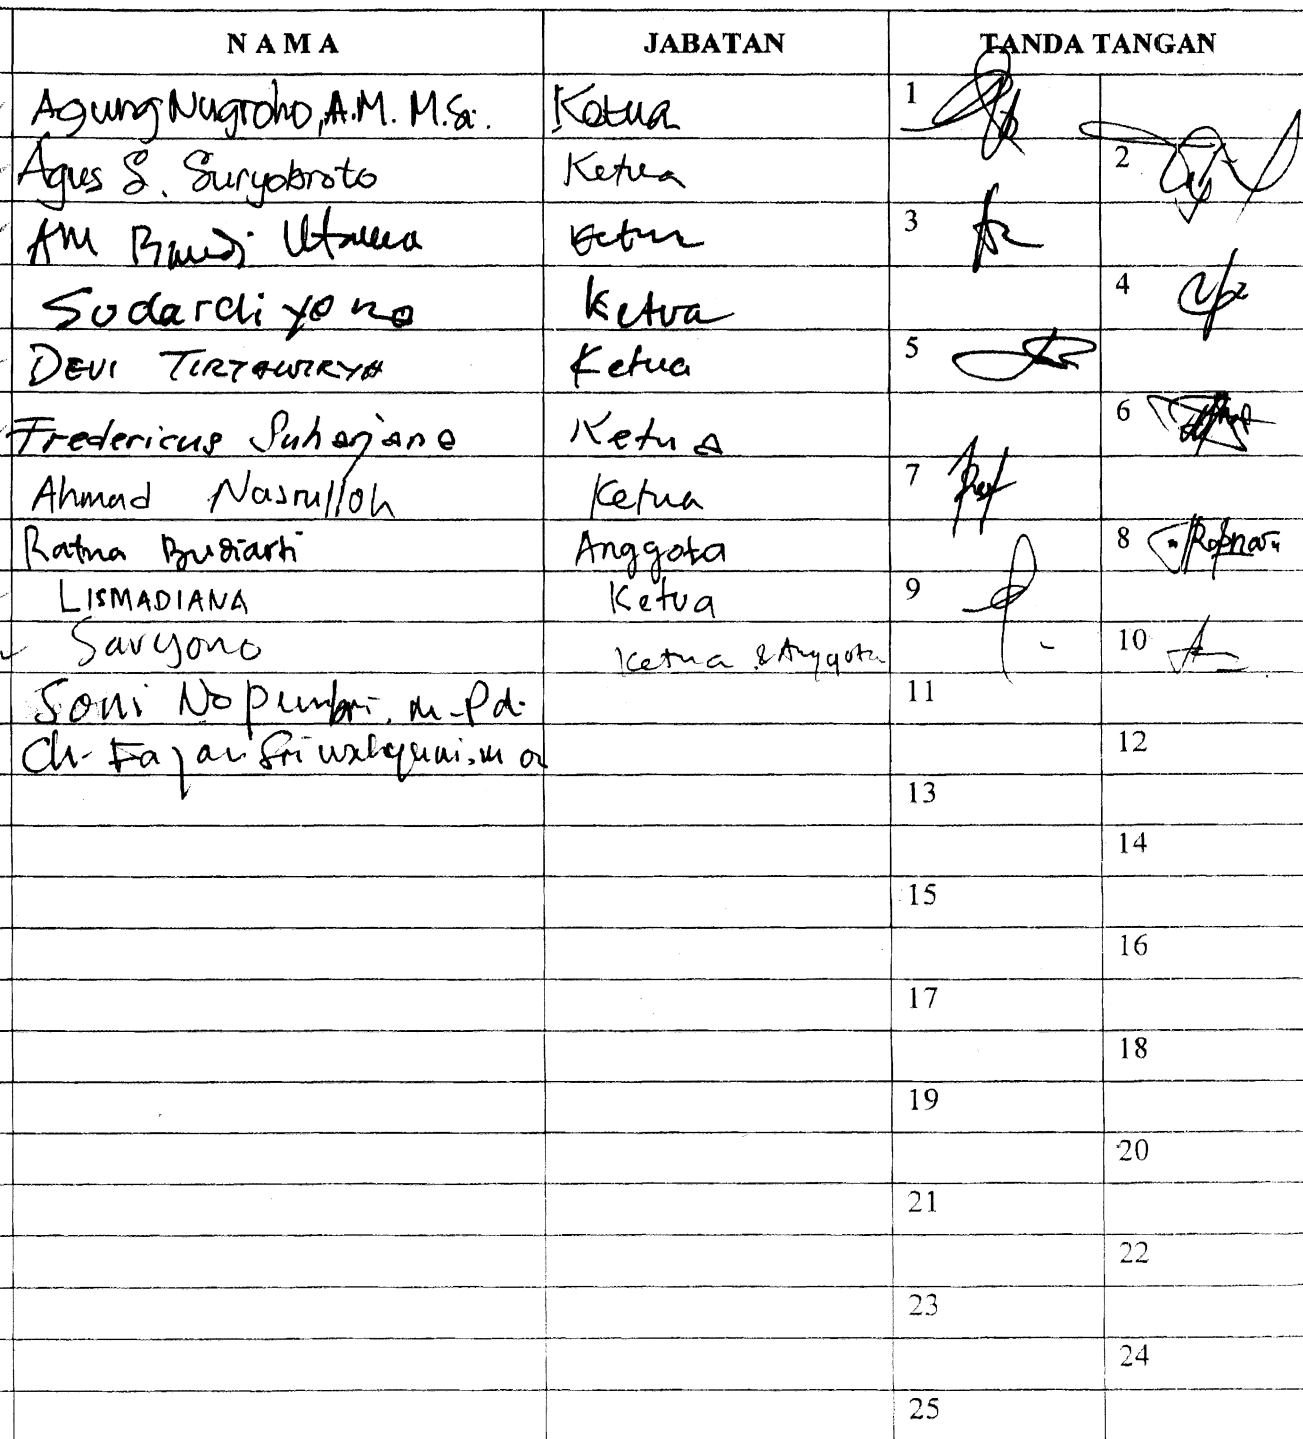 N A M A JABATAN TANDA TANGAN
Agung Nugroho, A.M. M.Si. Ketua 1
Agus S. Suryobroto Ketua 2
AM Bandi Utama Ketua 3
Sudardiyono Ketua 4
DEVI TIRTAWIRYA Ketua 5
Fredericus Suharjana Ketua 6
Ahmad Nasrulloh Ketua 7
Ratna Budiarti Anggota 8
LISMADIANA Ketua 9
Saryono Ketua & Anggota 10
Soni Nopembri, M.Pd. 11
Ch. Fajar Sri Wahyuni, M 12
13
14
15
16
17
18
19
20
21
22
23
24
25